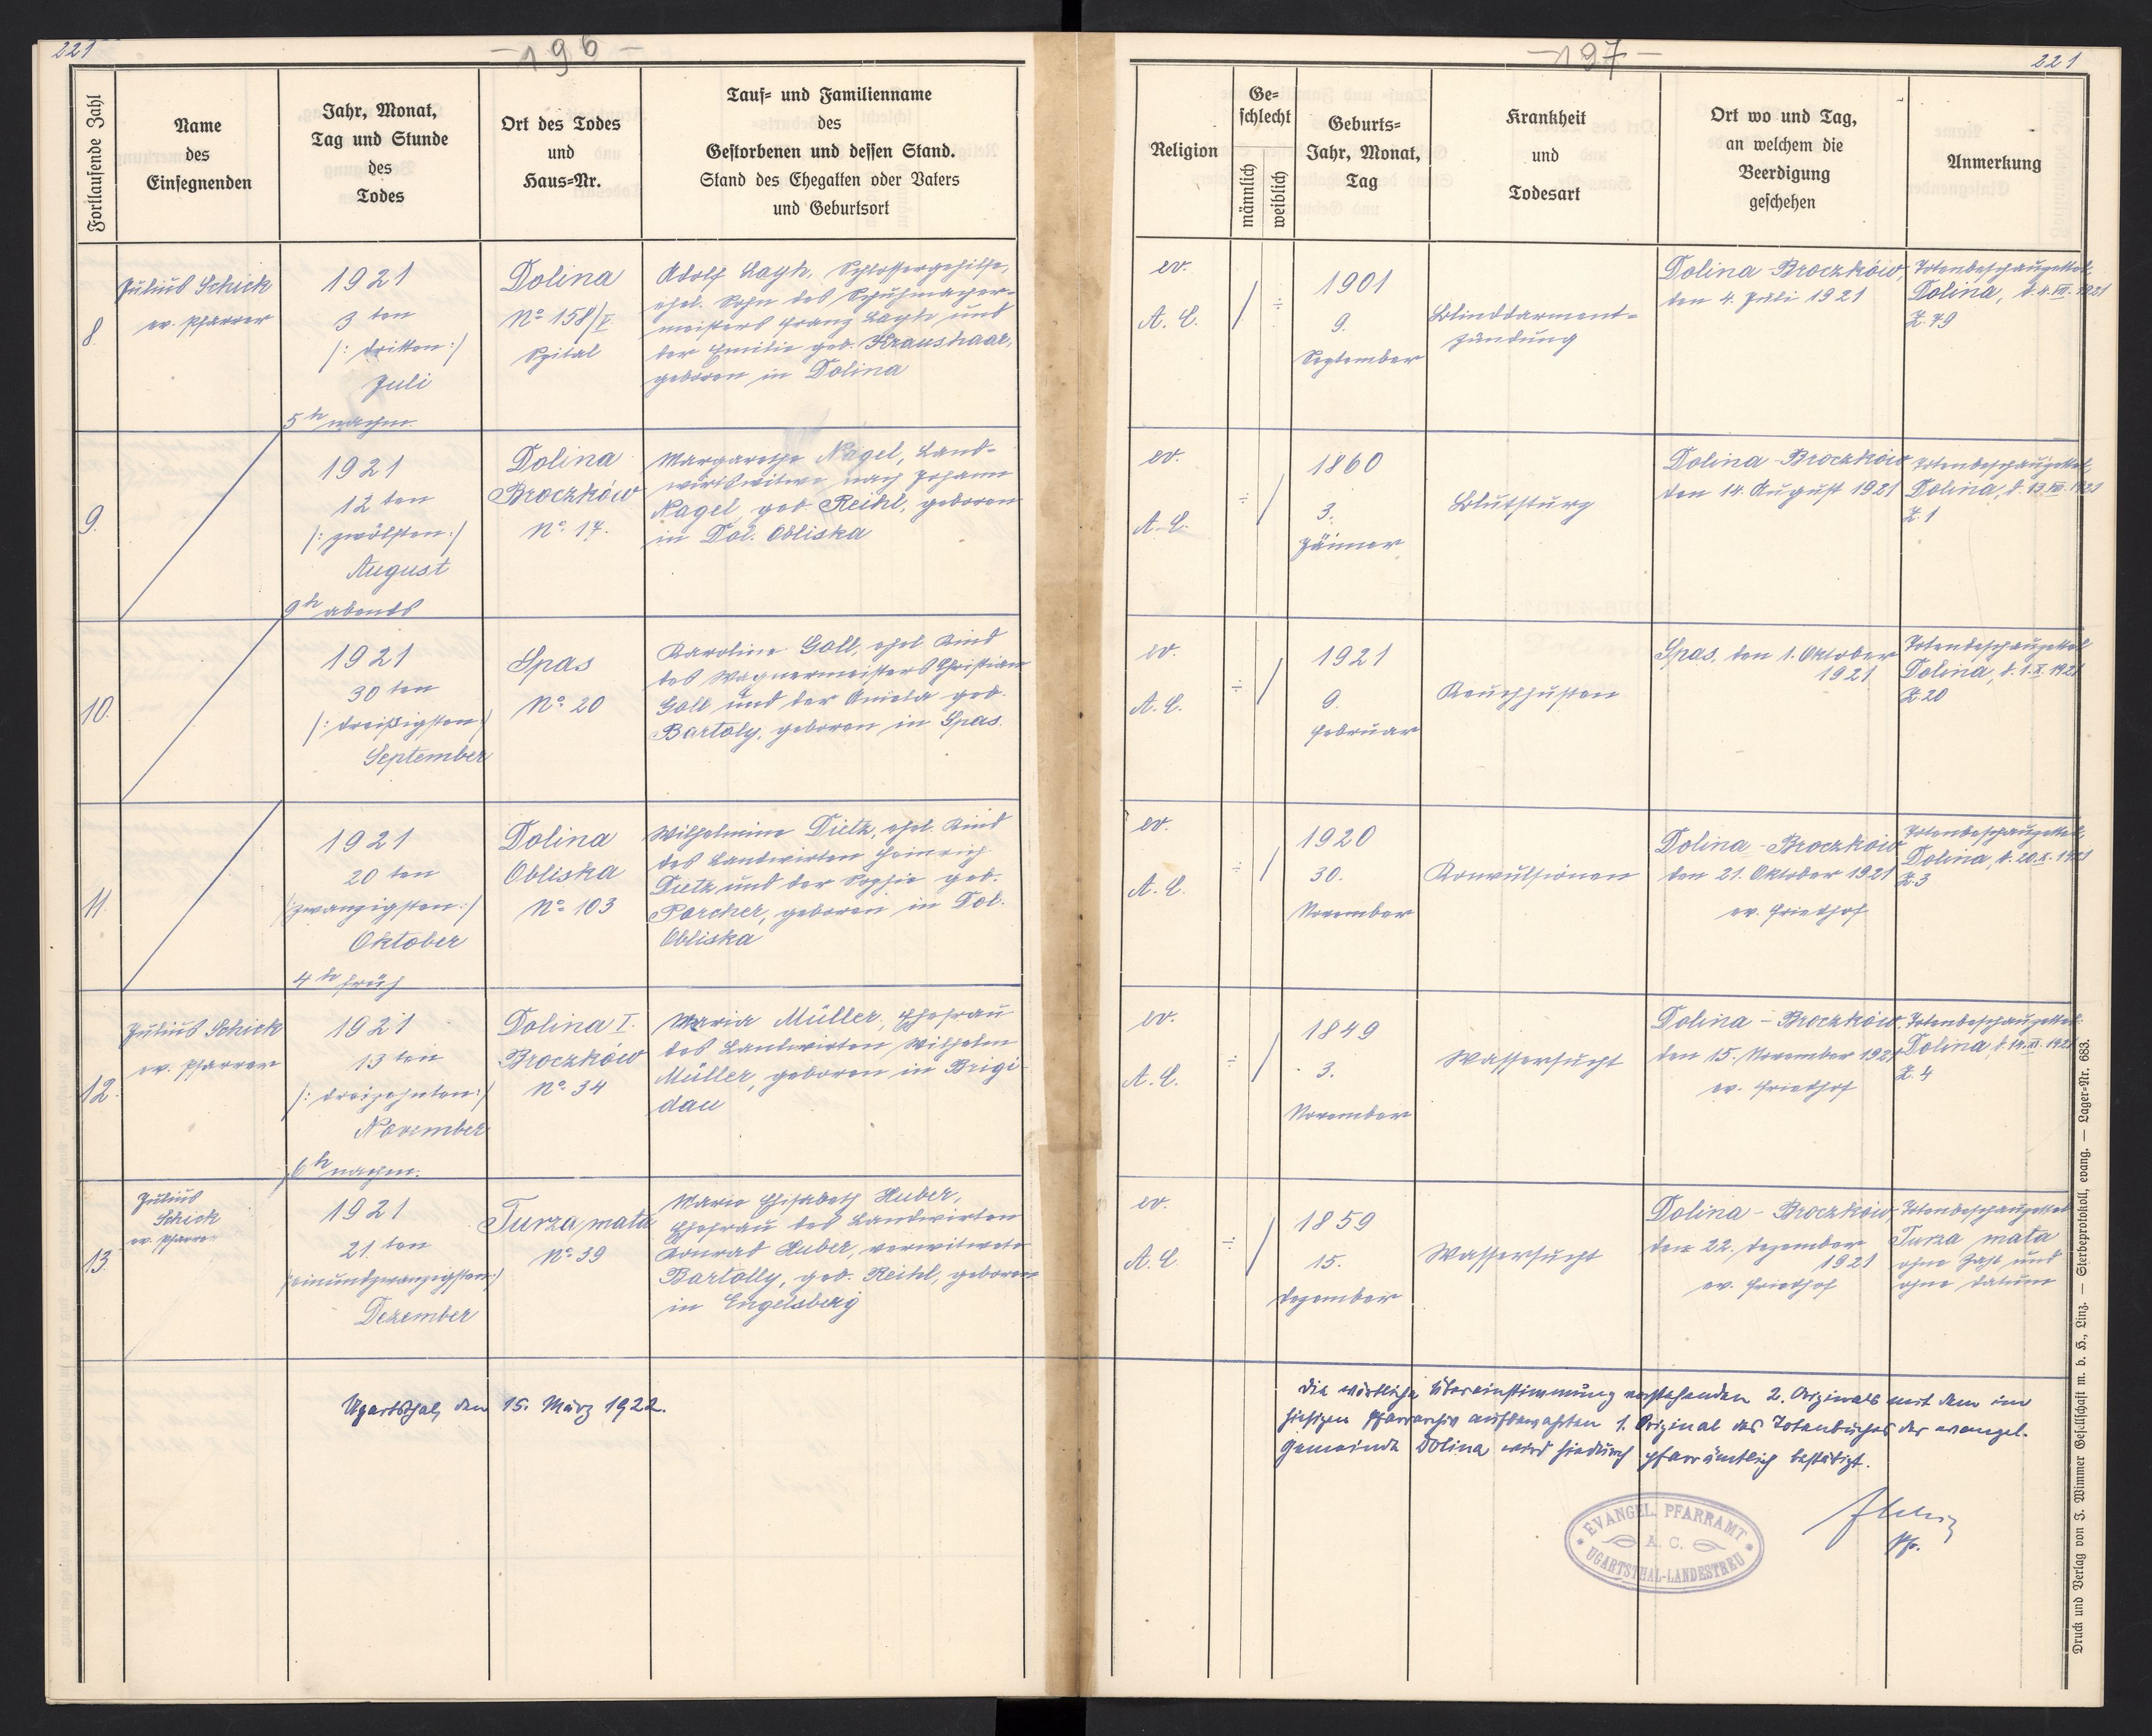 221
- 196 -
Fortlaufende Zahl
Name
des
Einsegnenden
Jahr, Monat,
Tag und Stunde
des
Todes
Ort des Todes
und
Haus-Nr.
Tauf- und Familienname
des
Gestorbenen und dessen Stand.
Stand des Ehegatten oder Vaters
und Geburtsort
8
Julius Schick
ev. Pfarrer
1921
3 ten
/: dritten :/
Juli
5 h nachm.
Dolina
No 158/I
Spital
Adolf Layh, Schlossergehilfe,
ehel. Sohn des Schuhmacher-
meisters Franz Layh und
der Emilie geb. Kraushaar,
geboren in Dolina
9.
1921
12 ten
/: zwölften :/
August
9 h abends
Dolina
Broczków
No 17.
Margarethe Nagel, Land-
wirtswitwe nach Johann
Nagel, geb. Reihl, geboren
in Dol. Obliska
10.
1921
30 ten
/: dreißigsten :/
September
Spas
No 20
Karoline Goll, ehel. Kind
des Wagnermeisters Christian
Goll und der Aniela geb.
Bartoly, geboren in Spas.
11.
1921
20 ten
/: zwanzigsten :/
Oktober
4 h früh
Dolina
Obliska
No 103
Wilhelmine Dietz, ehel. Kind
des Landwirten Heinrich
Dietz und der Sophie geb.
Porcher, geboren in Dol.
Obliska
12.
Julius Schick
ev. Pfarrer
1921
13 ten
/: dreizehnten :/
November
6 h nachm.
Dolina I.
Broczków
No 34
Maria Müller, Ehefrau
des Landwirten Wilhelm
Müller, geboren in Brigi-
dau
13.
Julius
Schick
ev. Pfarrer
1921
21. ten
/: einundzwanzigsten :/
Dezember
Turza mała
No 39
Marie Elisabeth Huber,
Ehefrau des Landwirten
Konrad Huber, verwitwete
Bartolly, geb. Reihl, geboren
in Engelsberg
Ugartsthal, den 15. März 1922.
- 197 -
221
Religion
Ge-
schlecht
männlich
weiblich
Geburts-
Jahr, Monat,
Tag
Krankheit
und
Todesart
Ort wo und Tag,
an welchem die
Beerdigung
geschehen
Anmerkung
ev.
A. C.
/
÷
1901
9.
September
Blinddarment-
zündung
Dolina-Broczków,
den 4. Juli 1921
Totenbeschauzettel,
Dolina, d. 4. VII. 1921
Z. 79
ev.
A. C.
÷
/
1860
3.
Jänner
Blutsturz
Dolina-Broczków
den 14. August 1921
Totenbeschauzettel,
Dolina, d. 13. VIII. 1921
Z. 1
ev.
A. C.
÷
/
1921
9.
Februar
Keuchhusten
Spas, den 1. Oktober
1921
Totenbeschauzettel
Dolina, d. 1. X. 1921
Z. 20
ev.
A. C.
÷
/
1920
30.
November
Konvulsionen
Dolina-Broczków
den 21. Oktober 1921
ev. Friedhof
Totenbeschauzettel,
Dolina, d. 20. X. 1921
Z. 3
ev.
A. C.
÷
/
1849
3.
November
Wassersucht
Dolina-Broczków,
den 15. November 1921
ev. Friedhof
Totenbeschauzettel
Dolina d. 14. XI. 1921
Z. 4
ev.
A. C.
÷
/
1859
15.
Dezember
Wassersucht
Dolina-Broczków,
den 22. Dezember
1921
ev. Friedhof
Totenbeschauzettel
Turza mała
ohne Zahl und
ohne Datum
Die wörtliche Übereinstimmung vorstehenden 2. Originals mit dem im
hiesigen Pfarrarchiv aufbewahrten 1. Original des Totenbuches der evangel.
Gemeinde Dolina wird hiedurch pfarrämtlich bestätigt.
EVANGEL. PFARRAMT
A. C.
UGARTSTHAL-LANDESTREU
Pfr.
Druck und Verlag von J. Wimmer Gesellschaft m. b. H., Linz. — Sterbeprotokoll, evang. — Lager-Nr. 683.